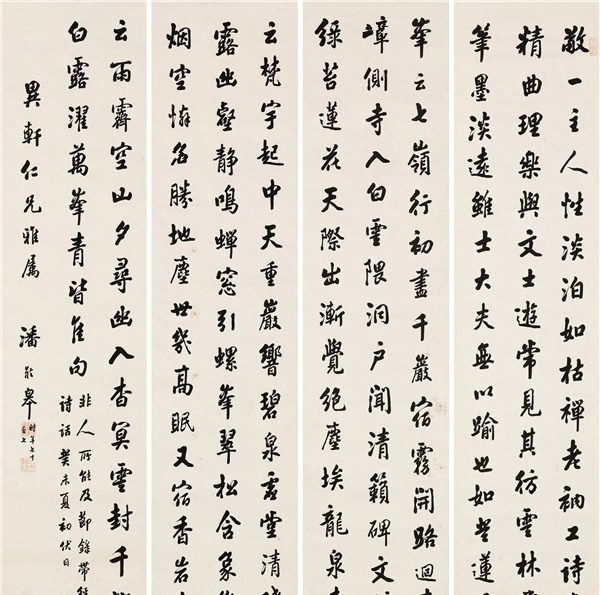 敬一主人性淡泊如枯禪老衲工诗
精曲理樂與文士遊常見其仿雲林
筆墨淡遠雖士大夫無以踰也如登蓮
峯云七嶺行初盡千巖宿霧開路迴
嶂側寺入白雲隈洞户聞清籟碑文
綠苔蓮花天際出漸覺絕塵埃龍泉
云梵宇起中天重巖響碧泉虛堂清
露幽壑靜鳴蟬窓引螺峯翠松含象
烟空悵名勝地塵世幾高眠又宿香岩
云雨霽空山夕尋幽入杳冥雲封千
白露濯萬峯青皆佳句
非人所能及節錄帶經
诗話癸未夏初伏日
異軒仁兄雅屬
潘齡皋
時年七十